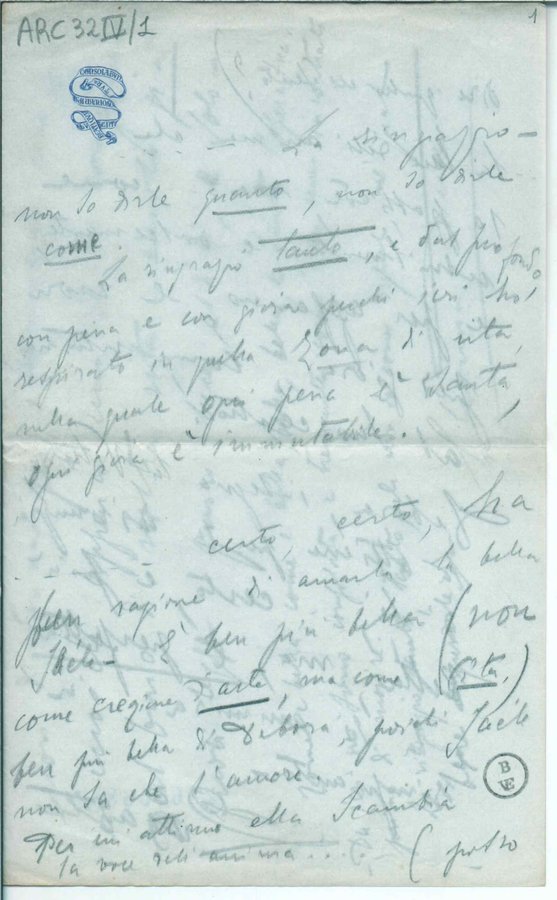 ARC 32 IV/1
1
— La ringrazio —
non so dirle quanto, non so dirle
come.
La ringrazio tanto, e dal profondo,
con pena e con gioia perché ieri ho
respirato in quella zona di vita,
nella quale ogni pena è santa,
ogni gioia è immutabile.
— certo, certo, ha
ben ragione di amarla la bella
Jaéle — È ben più bella (non
come creazione d'arte, ma come vita)
ben più bella di Debora, perché Jaéle
non sa che l'amore.
Per un attimo ella scambia
la voce dell'anima... (posso
B
VE